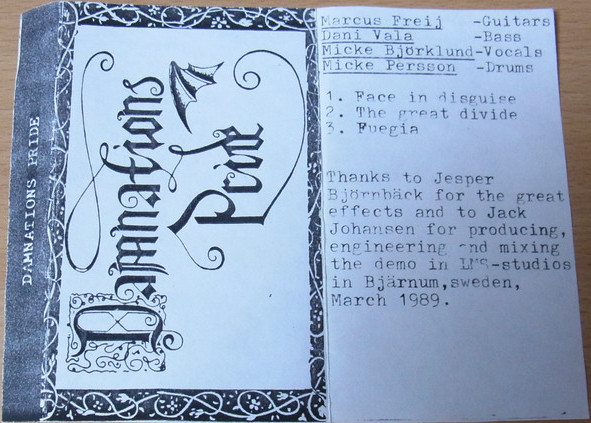 DAMNATIONS PRIDE
Damnations
Pride
Marcus Freij -Guitars
Dani Vala -Bass
Micke Björklund-Vocals
Micke Persson -Drums
1. Face in disguise
2. The great divide
3. Fuegia
Thanks to Jesper
Björnbäck for the great
effects and to Jack
Johansen for producing,
engineering and mixing
the demo in -studios
in Bjärnum,sweden,
March 1989.